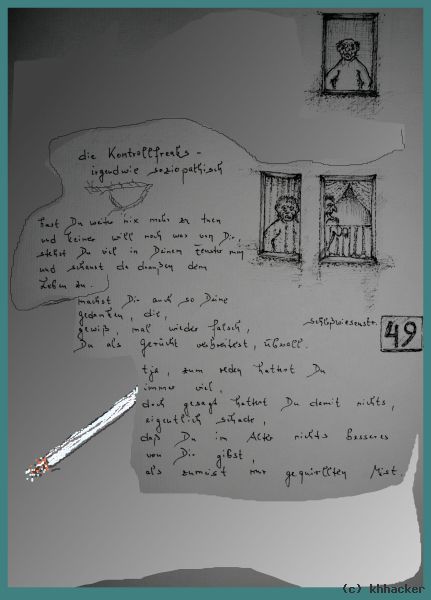 die Kontrollfreaks -
irgendwie soziopathisch
hast Du weiter nix mehr zu tuen
und keiner will noch was von Dir,
stehst Du viel in Deinem Fenster rum
und schaust da draußen dem
Leben zu.
machst Dir auch so Deine
gedanken, die,
gewiß, mal wieder falsch,
Du als gerücht verbreitest, übvoll.
schloßwiesenstr.
49
tja, zum reden hattest Du
immer viel,
doch gesagt hattest Du damit nichts,
eigentlich schade,
daß Du im Alter nichts besseres
von Dir gibst,
als zumeist nur gequirllten Mist.
(c) khhacker